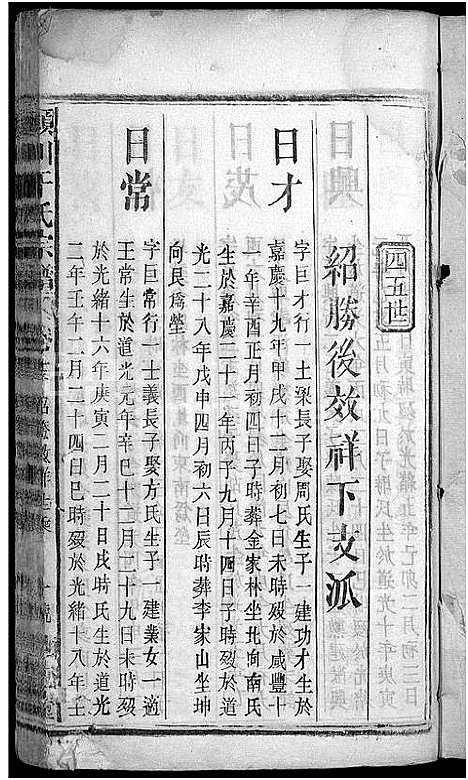 四五世
紹勝後效祥下支派
日才
字巨才行一士榘長子娶周氏生子一建功才生於
嘉慶十九年甲戌十二月初七日未時歿於咸豐十
一年辛酉正月初四日子時葬金家林坐北向南氏
生於嘉慶二十一年丙子九月十四日子時歿於道
光二十八年戊申四月初六日辰時葬李家山坐坤
向艮爲塋
日常
字巨常行一士義長子娶方氏生子一建業女一適
王常生於道光元年辛巳十二月二十九日未時歿
於光緒十六年庚寅二月二十日戌時氏生於道光
二年壬午二月二十四日巳時歿於光緒十八年壬
川于氏宗譜